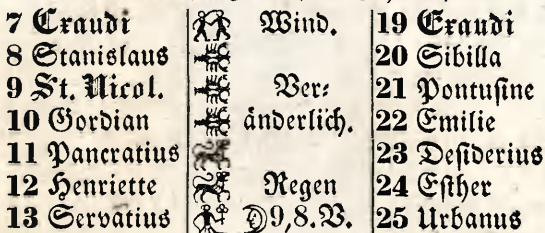 7 Exaudi Wind. 19 Exaudi
8 Stanislaus 20 Sibilla
9 St. Nicol. Ver⸗ 21 Pontusine
10 Gordian änderlich. 22 Emilie
11 Pancratius 23 Desiderius
12 Henriette Regen 24 Esther
13 Servatius 9,8.V. 25 Urbanus